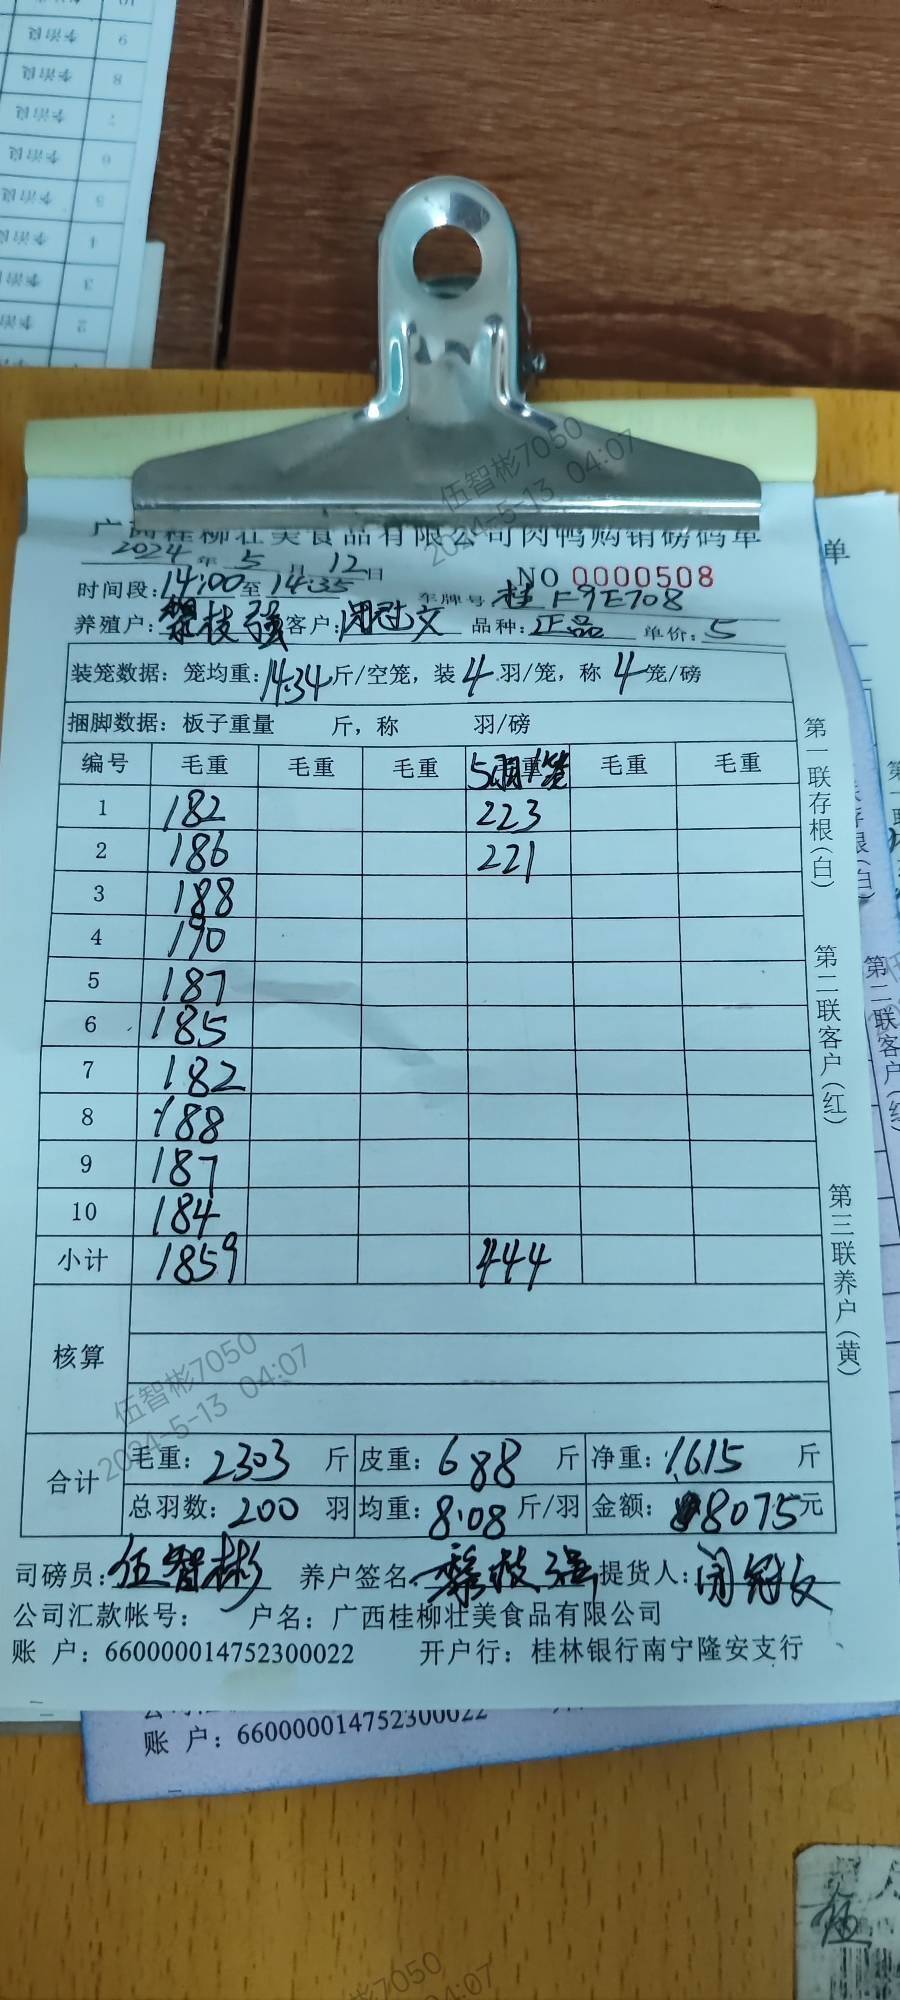 广西桂柳壮美食品有限公司肉鸭购销磅码单
2024年5月12日 NO 0000508
时间段:14:00至14:35 车牌号 桂F9E708
养殖户:黎枝强 客户:闭冠文 品种:正品 单价:5
装笼数据:笼均重:14.34斤/空笼,装4羽/笼,称4笼/磅
捆脚数据:板子重量 斤,称 羽/磅
编号 毛重 毛重 毛重 毛重 毛重
1 182 223
2 186 221
3 188
4 190
5 187
6 185
7 182
8 188
9 187
10 184
小计 1859 444
核算
合计 毛重:2303斤 皮重:688斤 净重:1615斤
总羽数:200羽 均重:8.08斤/羽 金额:8075元
司磅员:伍智彬 养户签名:黎枝强 提货人:闭冠文
公司汇款帐号: 户名:广西桂柳壮美食品有限公司
账 户:660000014752300022 开户行:桂林银行南宁隆安支行
第一联存根(白)
第二联客户(红)
第三联养户(黄)
账 户:660000014752300022
单
伍智彬7050
2024-5-13 04:07
伍智彬7050
2024-5-13 04:07